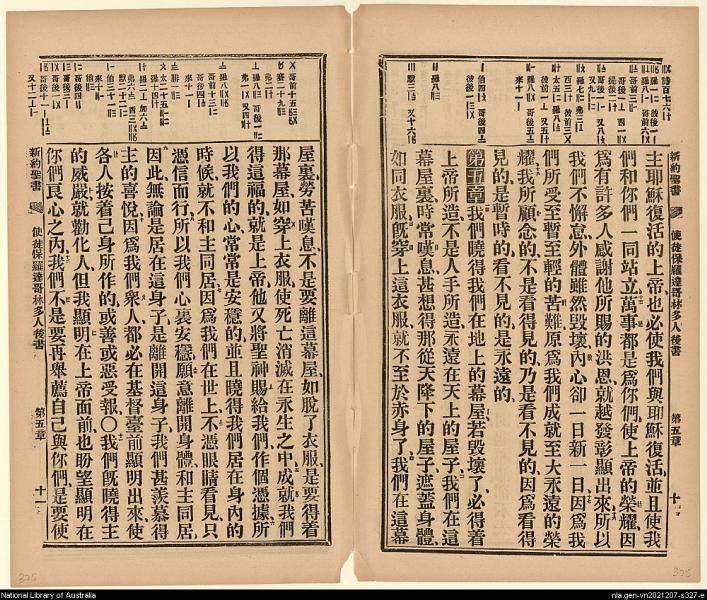 新約聖書 使徒保羅達哥林多人後書 第五章 十
主耶穌復活的上帝、也必使我們與耶穌復活、並且使我
們和你們一同站立、萬事都是爲你們、使上帝的榮耀、因
爲有許多人感謝他所賜的洪恩、就越發彰顯出來、所以
我們不懈怠、外體雖然毀壞、內心卻一日新一日、因爲我
們所受至暫至輕的苦難、原爲我們成就至大永遠的榮
耀、我所顧念的、不是看得見的、乃是看不見的、因爲看得
見的是暫時的、看不見的是永遠的、
第五章 我們曉得我們在地上的幕屋、若毀壞了、必得着
上帝所造、不是人手所造、永遠在天上的屋子、我們在這
幕屋裏、時常嘆息、甚想得那從天降下的屋子、遮蓋身體、
如同衣服、旣穿上這衣服、就不至於赤身了、我們在這幕
屋裏、勞苦嘆息、不是要離這幕屋、如脫了衣服、是要得着
那幕屋、如穿上衣服、使死亡消滅在永生之中、成就我們
得這福的、就是上帝、他又將聖神賜給我們、作個憑據、所
以我們的心、常常是安穩的、並且曉得我們居在身內的
時候、就不和主同居、因爲我們在世上、不憑眼睛看見、只
憑信而行、所以我們心裏安穩、願意離開身體、和主同居、
因此、無論是居在這身子、是離開這身子、我們甚羨慕得
主的喜悅、因爲我們衆人、都必在基督臺前顯明出來、使
各人按着己身所作的、或善或惡受報、〇我們旣曉得主
的威嚴、就勸化人、但我顯明在上帝面前、也盼望顯明在
你們良心之內、我們不是要再舉薦自己與你們、是要使
新約聖書 使徒保羅達哥林多人後書 第五章 十一
375
375
National Library of Australia
nla.gen-vn2021207-s327-e